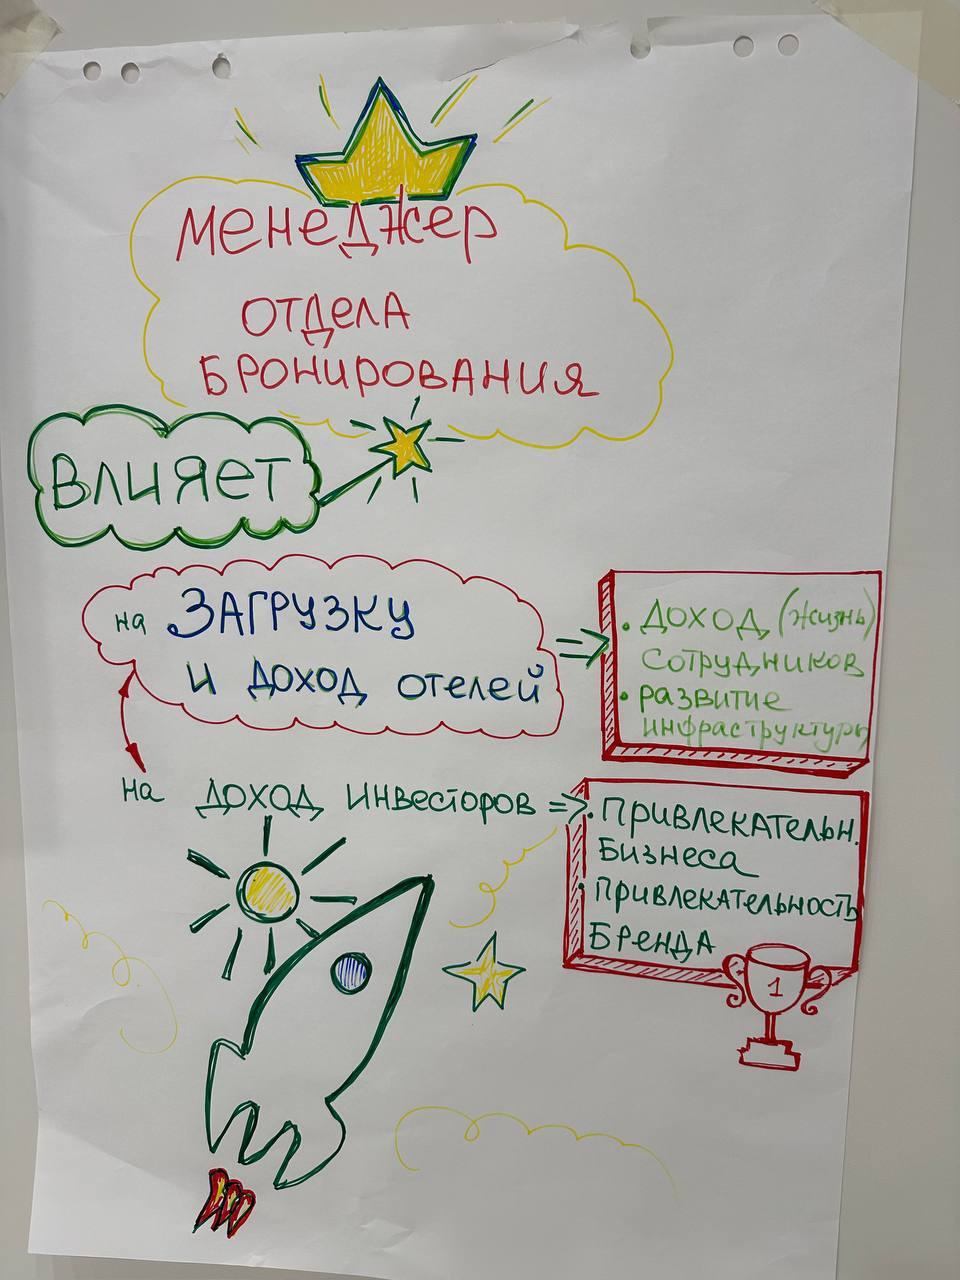 Менеджер
отдела
бронирования
Влияет
на Загрузку
и доход отелей
• Доход (жизнь)
сотрудников
• развитие
инфраструктуры
на доход инвесторов =>
• Привлекательн.
Бизнеса
• Привлекательность
Бренда
1